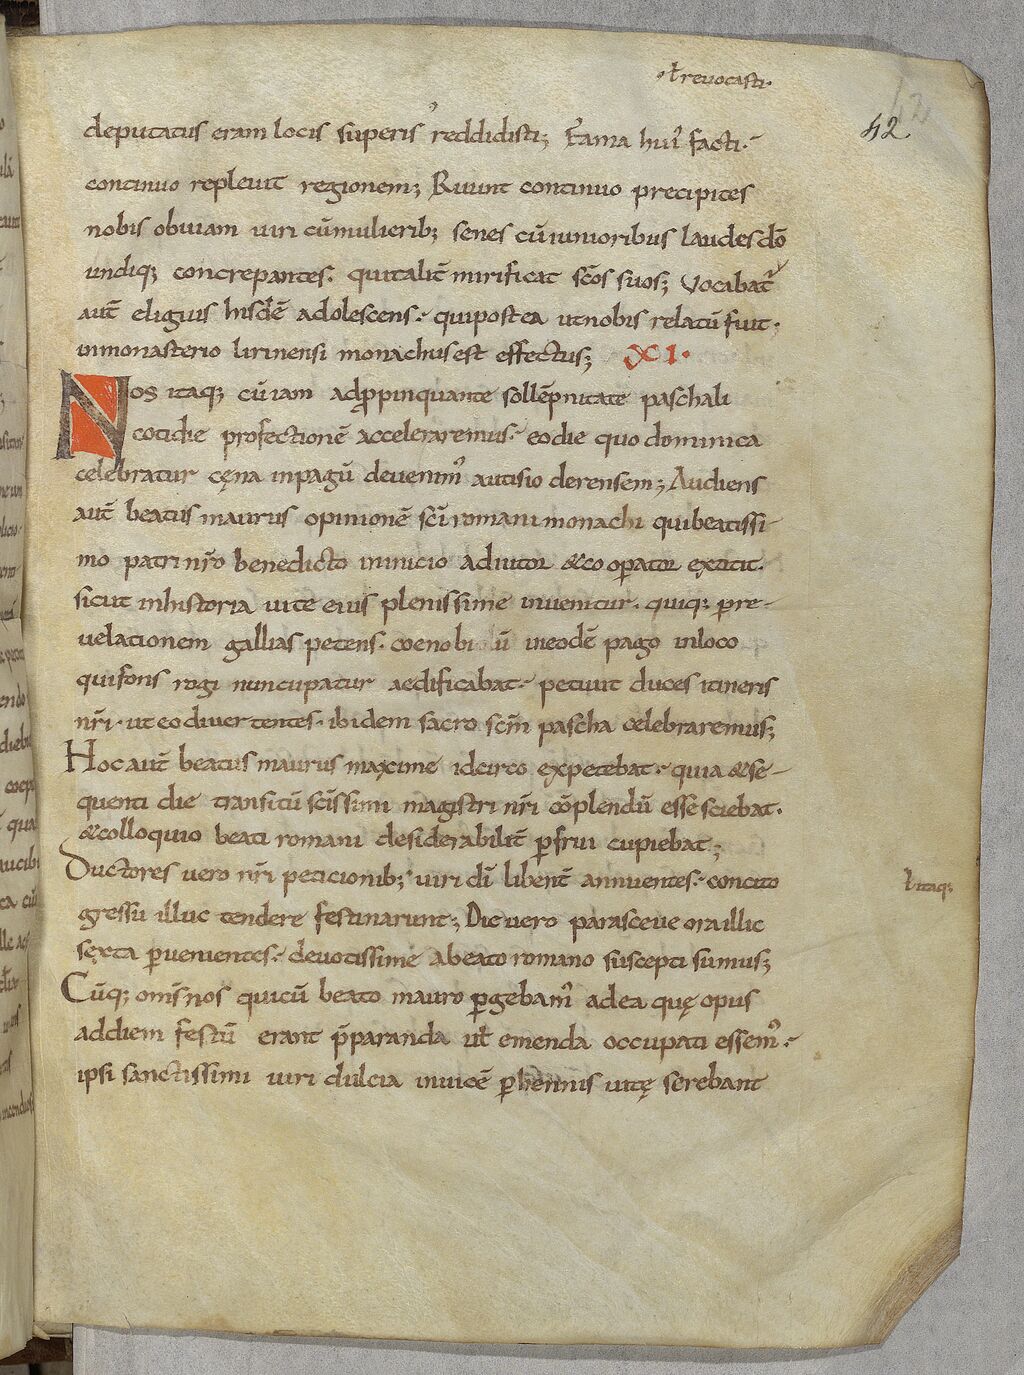 ·ł revocasti·
deputatus eram locis superis reddidisti; Fama hui᾽ facti·
42
continuo replevit regionem; Ruunt continuo precipites
nobis obviam viri cū mulierib; senes cū iunioribus laudes dō
undiq; concrepantes· qui talit̄ mirificat sc̄os suos; Vocabat᾽
aut̄ eligius hisdē adolescens· qui postea ut nobis relatū fuit;
in monasterio lirinensi monachus est effectus; XI·
Nos itaq; cū iam adp̱ropinquante sollēpnitate paschali
cotidie profectionē acceleraremus· eo die quo dominica
celebratur cęna in pagū devenim᾽ autisioderensem; Audiens
aut̄ beatus maurus opinionē sc̄i romani monachi qui beatissi-
mo patri nr̄o benedicto in inicio adiutor &cooꝑator extitit·
sicut in historia vite eius plenissime invenitur· quiq; ꝑ re-
velationem gallias petens· coenobiū in eodē pago in loco
qui fons rogi nuncupatur aedificabat· petivit duces itineris
nr̄i· ut eo divertentes· ibidem sacro sc̄m pascha celebraremus;
Hoc aut̄ beatus maurus maxime idcirco expetebat· quia &se-
quenti die transitū sc̄issimi magistri nr̄i cōplendū esse sciebat·
&colloquio beati romani desiderabilit̄ ꝑfrui cupiebat;
Ductores vero nr̄i peticionib; viri dī libent̄ annuentes· concito
ł itaq;
gressu illuc tendere festinarunt; Die vero parasceve ora illic
sexta ꝑvenientes· devotissime a beato romano suscepti sumus;
Cūq; om̄s nos qui cū beato mauro ꝑgebam᾽ ad ea quę opus
ad diem festū erant p̄paranda uł emenda occupati essem᾽·
ipsi sanctissimi viri dulcia invicē ꝑhennis vitę serebant